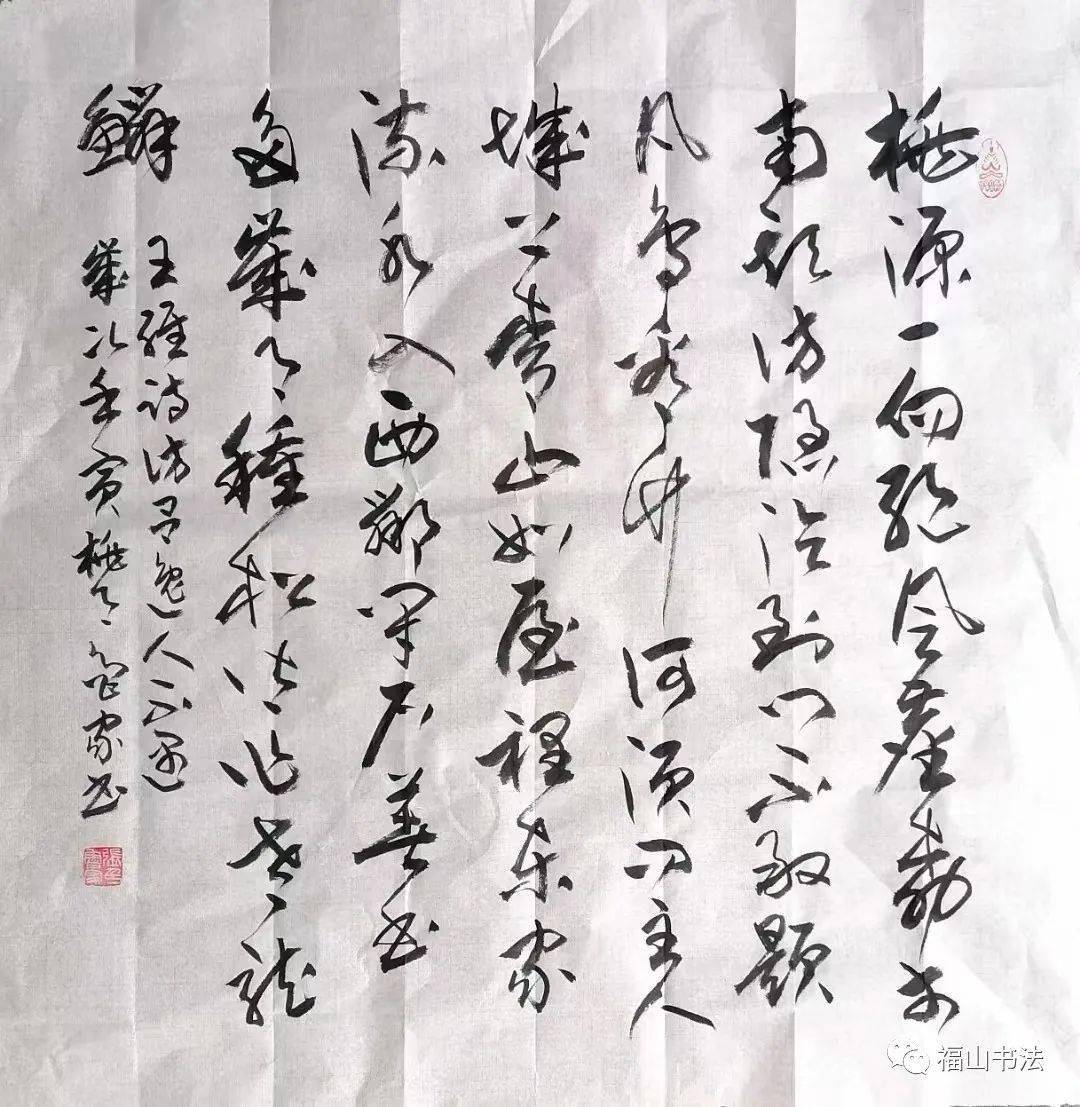 桃源一向绝风尘柳市
南头访隐沦到门不敢题
凡鸟看竹何须问主人
城上青山如屋裡东家
流水入西鄰闭户著书
多歲月種松皆作老龙
鳞
王维诗访吕逸人不遇
歲次壬寅桃月 家书
福山书法